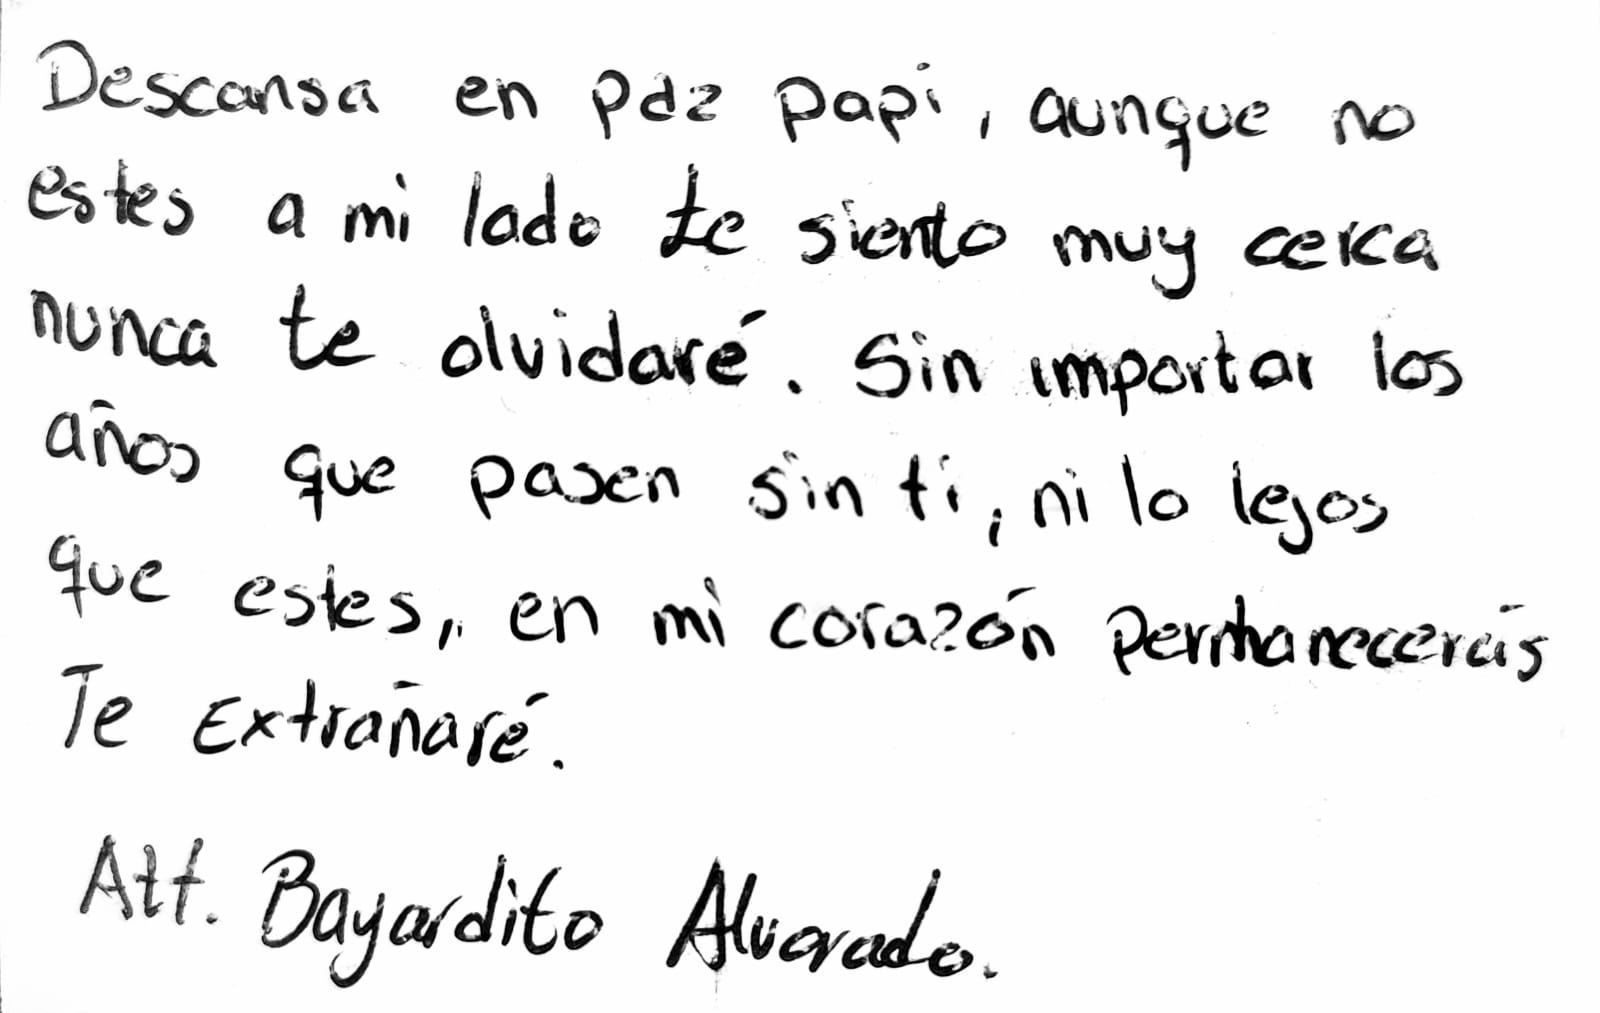 Descansa en paz papi, aunque no
estes a mi lado te siento muy cerca
nunca te olvidaré. Sin importar los
años que pasen sin ti, ni lo lejos
que estes,, en mi corazón permanecerás
Te Extrañaré.
Att. Bayardito Alvarado.